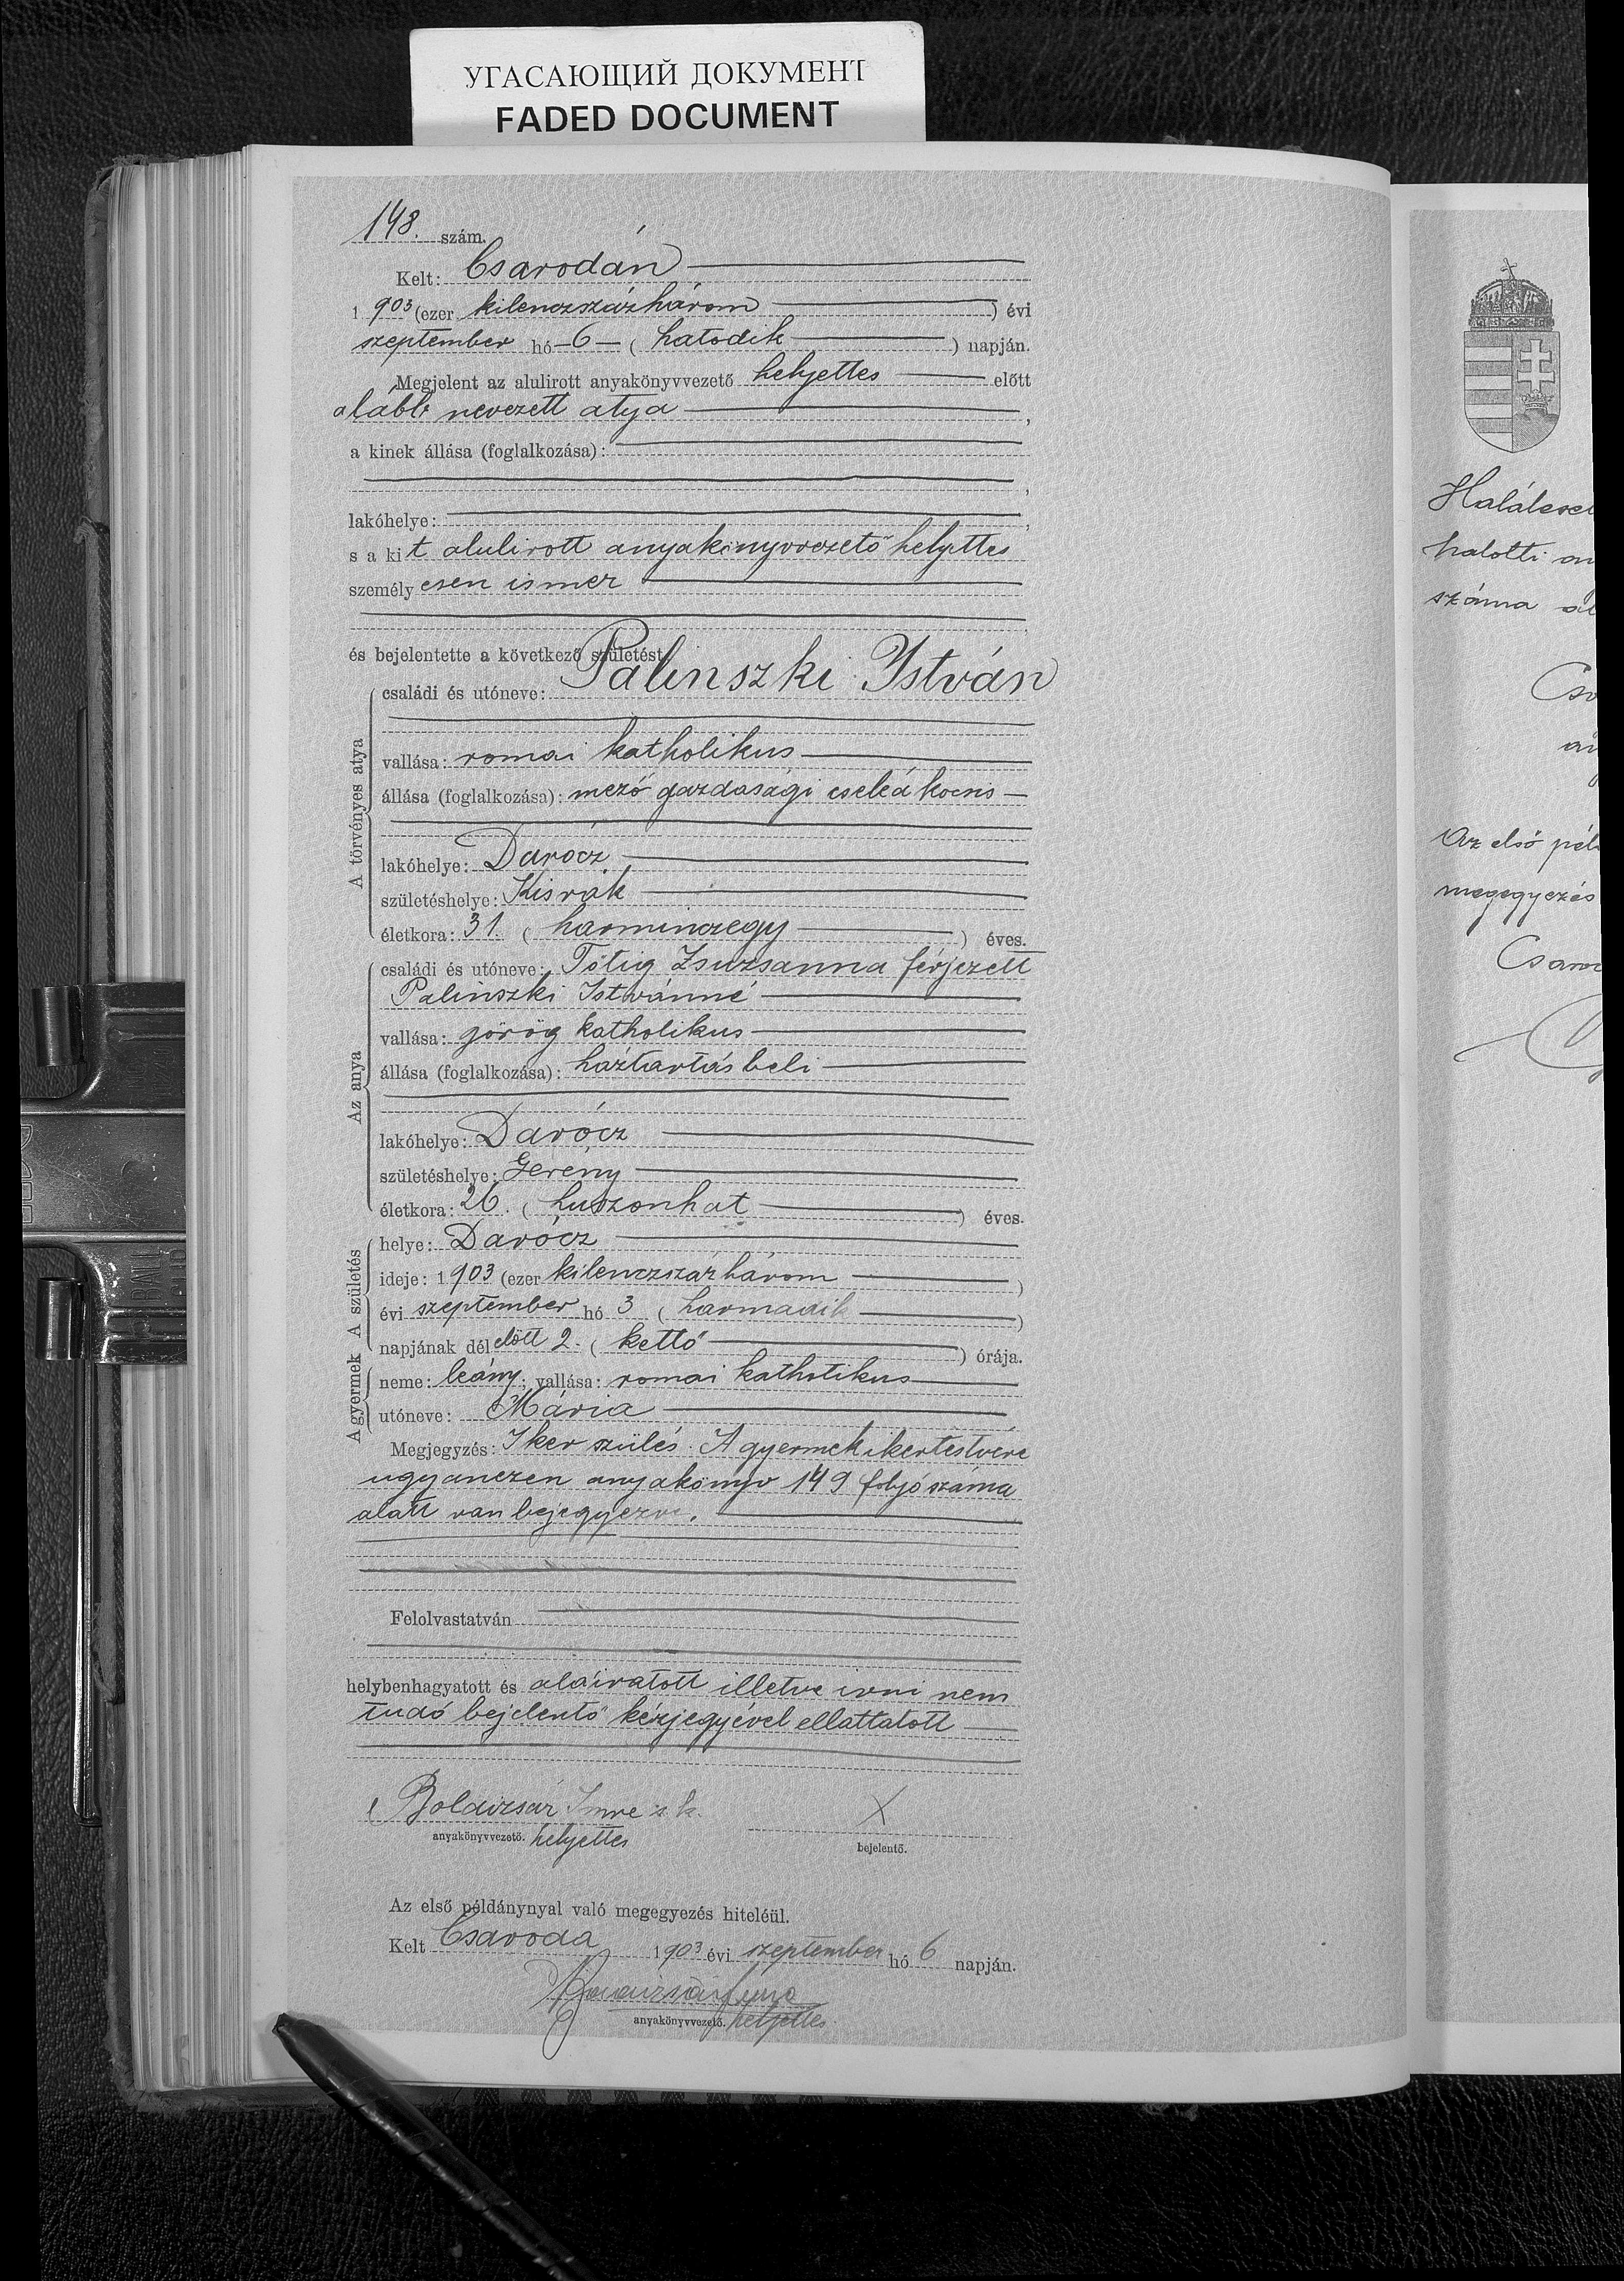 УГАСАЮЩИЙ ДОКУМЕНТ
FADED DOCUMENT
148. szám.
Kelt: Csarodán
1 903 (ezer kilenczszázhárom ) évi
szeptember hó 6 ( hatodik ) napján.
Megjelent az alulirott anyakönyvvezető helyettes előtt
alább nevezett atya ,
a kinek állása (foglalkozása):
,
lakóhelye: ,
s a kit alulirott anyakönyvvezető helyettes
személyesen ismer
és bejelentette a következő születést:
A törvényes atya
családi és utóneve: Palinszki István
vallása: romai katholikus
állása (foglalkozása): mező gazdasági cseléd kocsis
lakóhelye: Darócz
születéshelye: Kisrát
életkora: 31. ( harminczegy ) éves.
Az anya
családi és utóneve: Tótig Zsuzsanna férjezett
Palinszki Istvánné
vallása: görög katholikus
állása (foglalkozása): háztartásbeli
lakóhelye: Darócz
születéshelye: Gerény
életkora: 26. ( huszonhat ) éves.
A születés
helye: Darócz
ideje: 1 903 (ezer kilenczszázhárom )
évi szeptember hó 3 ( harmadik )
napjának délelőtt 2. ( kettő ) órája.
A gyermek
neme: leány; vallása: romai katholikus
utóneve: Mária
Megjegyzés: Iker szülés. A gyermek ikertestvére
ugyanezen anyakönyv 149 folyószáma
alatt van bejegyezve.
Felolvastatván
helybenhagyatott és aláiratott illetve irni nem
tudó bejelentő kézjegyével ellattatott
Boldizsár Imre s. k. X
anyakönyvvezető. helyettes bejelentő.
Az első példánynyal való megegyezés hiteléül.
Kelt Csaroda 1 903 évi szeptember hó 6 napján.
Boldizsár Imre
anyakönyvvezető. helyettes
Haláleset
halotti an
száma al
Cso
Az első péld
megegyezés
Csaro